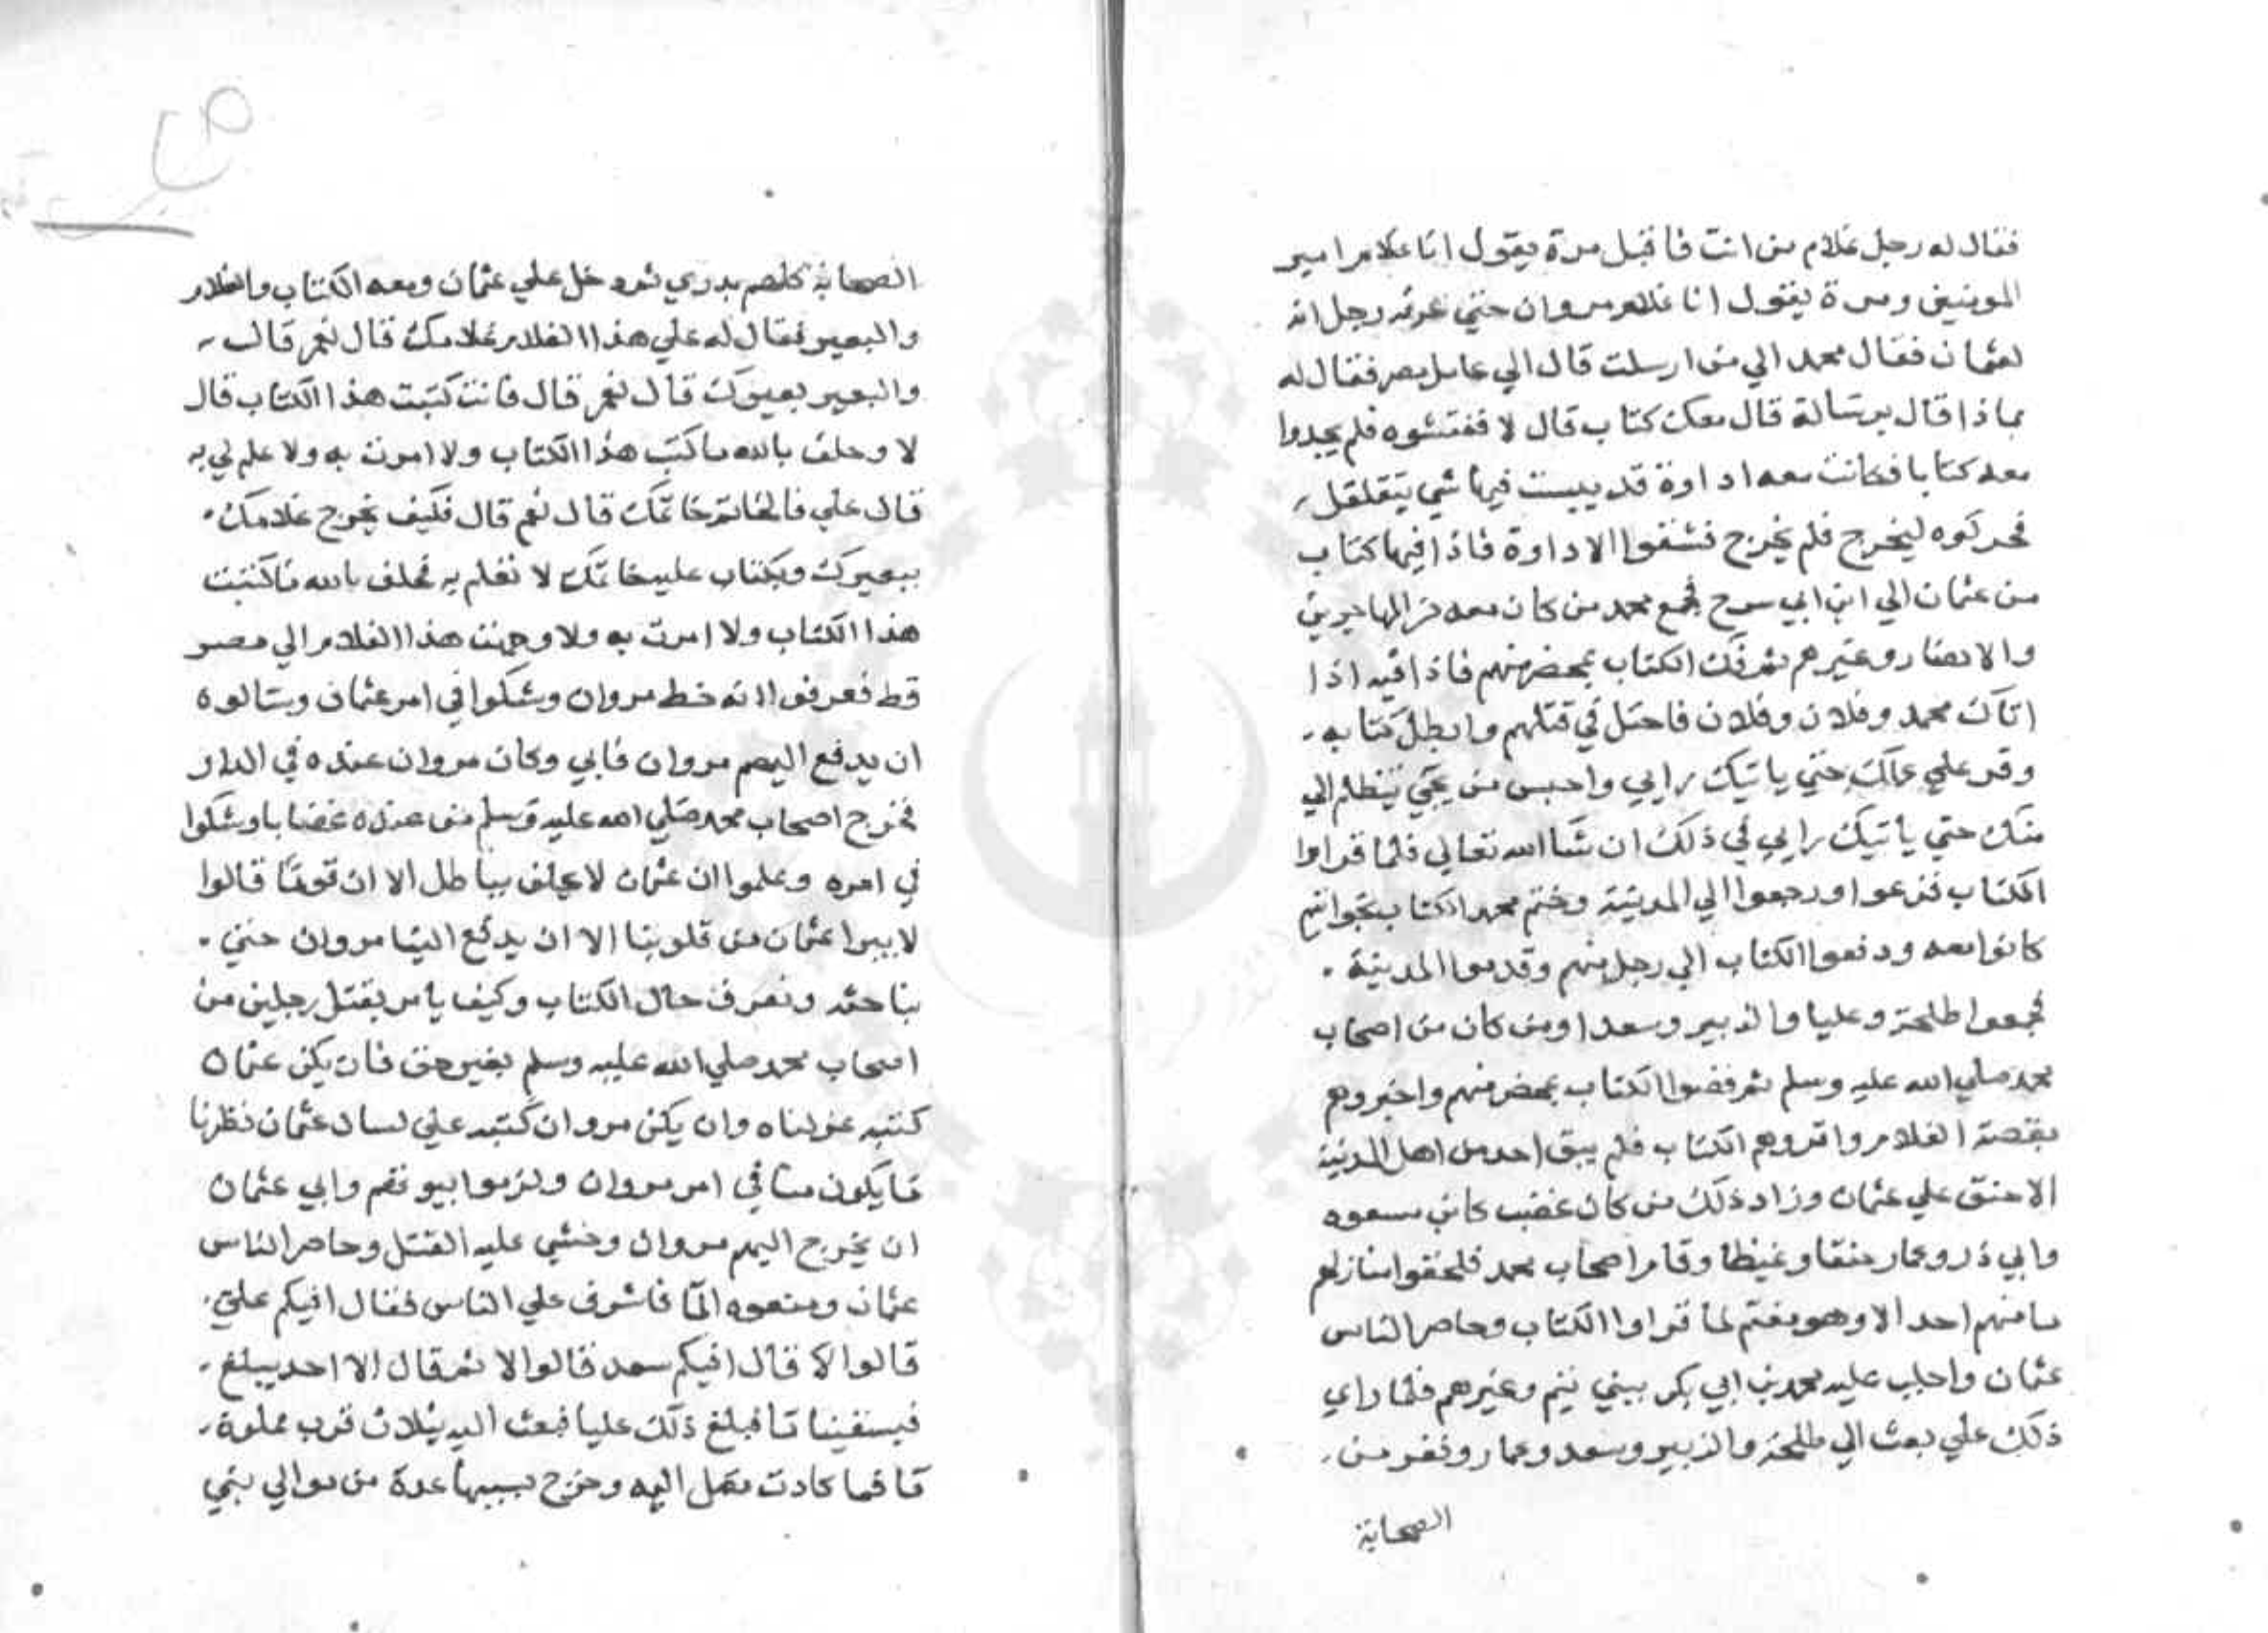 فقال له رجل غلام من انت فاقبل مرة يقول انا غلام امير
المومنين ومرة يقول انا غلام مروان حتي عرفه رجل انه
لعثمان فقال محمد الي من ارسلت قال الي عامل مصر فقال له
بماذا قال برسالة قال معك كتاب قال لا ففتشوه فلم يجدوا
معه كتابا فكانت معه اداوة قد يبست فيها شي يتقلقل
فحركوه ليخرج فلم يخرج فشقوا الاداوة فاذا فيها كتاب
من عثمان الي ابن ابي سرح فجمع محمد من كان معه من المهاجرين
والانصار وغيرهم ثم فك الكتاب بمحضر منهم فاذا فيه اذا
اتاك محمد وفلان وفلان فاحتل في قتلهم وابطل كتابه
وقر علي عملك حتي ياتيك رايي واحبس من يجي يتظلم الي
منك حتي ياتيك رايي في ذلك ان شا الله تعالي فلما قراوا
الكتاب فزعوا ورجعوا الي المدينة وختم محمد الكتاب بخواتم
كانوا معه ودفعوا الكتاب الي رجل منهم وقدموا المدينة
فجمعوا طلحة وعليا والزبير وسعدا ومن كان من اصحاب
محمد صلي الله عليه وسلم ثم فضوا الكتاب بمحضر منهم واخبروهم
بقصة الغلام واقروهم الكتاب فلم يبق احد من اهل المدينة
الا حنق علي عثمان وزاد ذلك من كان غضب كابن مسعود
وابي ذر وعمار حنقا وغيظا وقام اصحاب محمد فلحقوا منازلهم
ما منهم احد الا وهو مغتم لما قراوا الكتاب وحاصر الناس
عثمان واجلب عليه محمد بن ابي بكر ببني تيم وغيرهم فلما راي
ذلك علي بعث الي طلحة والزبير وسعد وعمار ونفر من
الصحابة
الصحابة كلهم بدري ثم دخل علي عثمان ومعه الكتاب والغلام
والبعير فقال له علي هذا الغلام غلامك قال نعم قال
والبعير بعيرك قال نعم قال فانت كتبت هذا الكتاب قال
لا وحلف بالله ما كتب هذا الكتاب ولا امرت به ولا علم لي به
قال علي فالخاتم خاتمك قال نعم قال فكيف يخرج غلامك
ببعيرك وبكتاب عليه خاتمك لا تعلم به فحلف بالله ما كتبت
هذا الكتاب ولا امرت به ولا وجهت هذا الغلام الي مصر
قط فعرفوا انه خط مروان وشكوا في امر عثمان وسالوه
ان يدفع اليهم مروان فابي وكان مروان عنده في الدار
فخرج اصحاب محمد صلي الله عليه وسلم من عنده غضابا وشكوا
في امره وعلموا ان عثمان لا يحلف بباطل الا ان قوما قالوا
لا يبرا عثمان من قلوبنا الا ان يدفع الينا مروان حتي
نباحثه ونعرف حال الكتاب وكيف يامر بقتل رجلين من
اصحاب محمد صلي الله عليه وسلم بغير حق فان يكن عثمان
كتبه عزلناه وان يكن مروان كتبه علي لسان عثمان نظرنا
ما يكون منا في امر مروان ولزموا بيوتهم وابي عثمان
ان يخرج اليهم مروان وخشي عليه القتل وحاصر الناس
عثمان ومنعوه الما فاشرف علي الناس فقال افيكم علي
قالوا لا قال افيكم سعد قالوا لا ثم قال الا احد يبلغ
فيسقينا ما فبلغ ذلك عليا فبعث اليه بثلاث قرب مملوة
ما فما كادت تصل اليه وخرج بسببها عدة من موالي بني